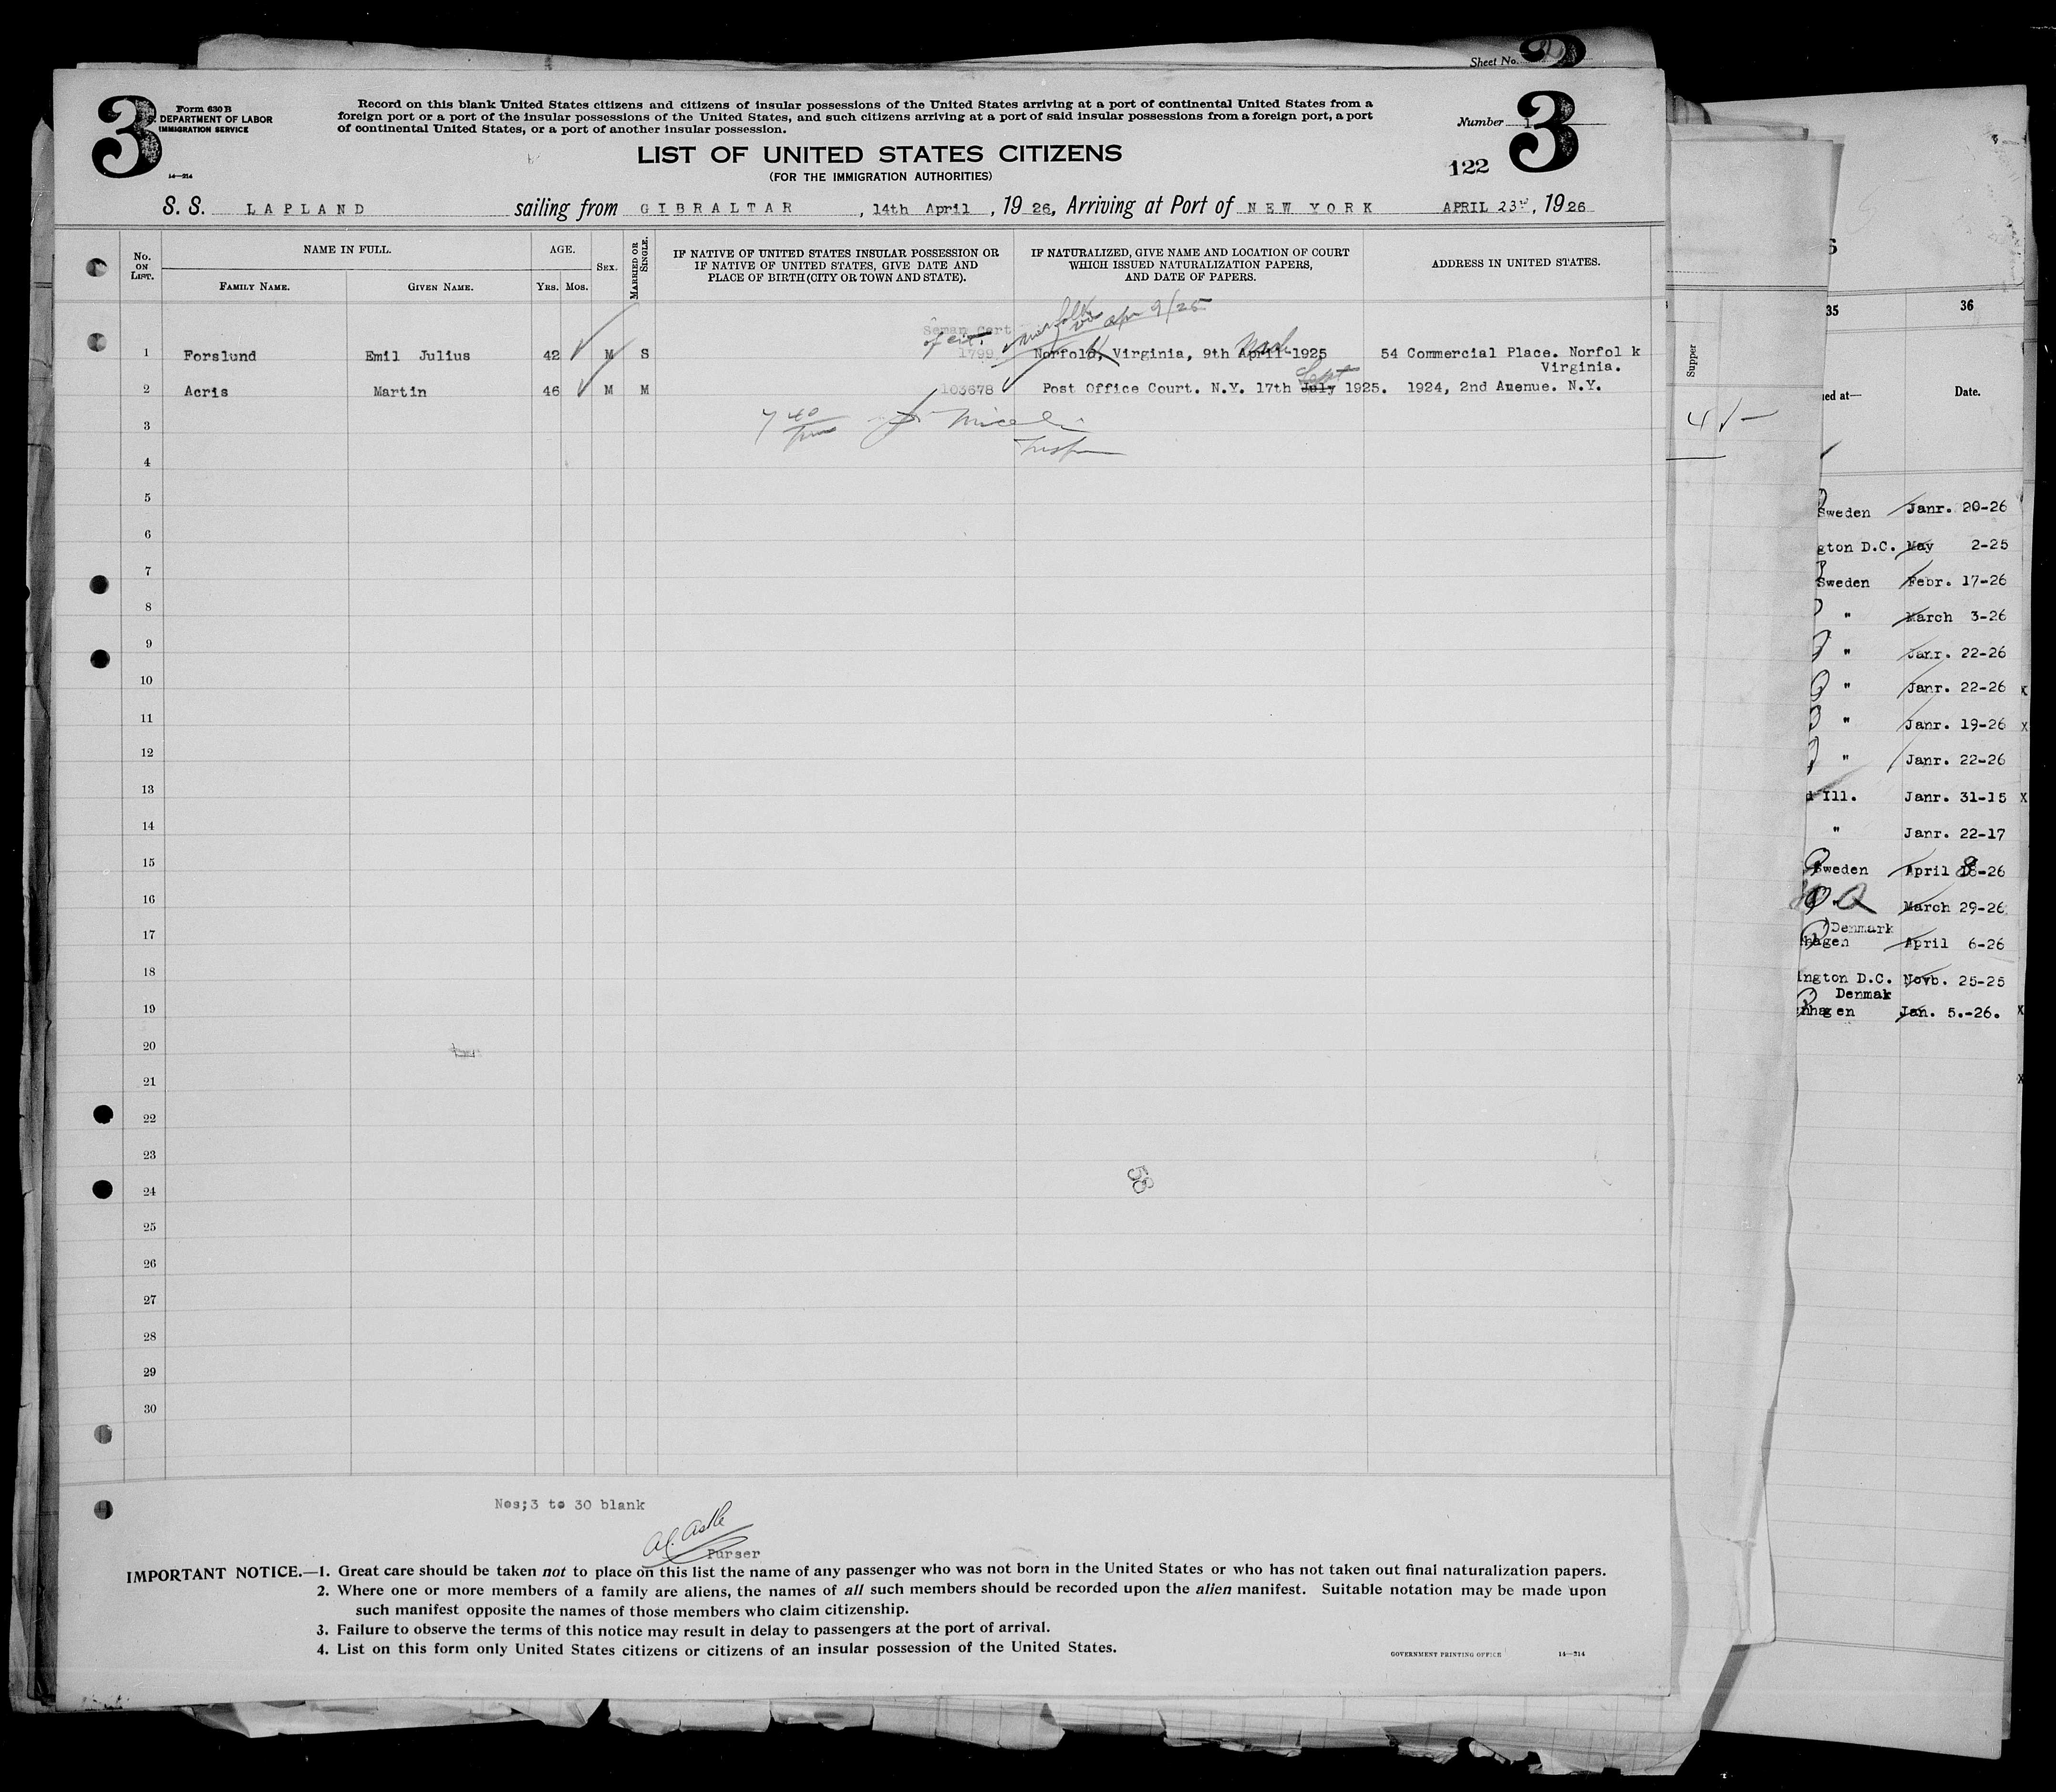 Sheet No. 3
3
Form 630 B
DEPARTMENT OF LABOR
IMMIGRATION SERVICE
14—214
Record on this blank United States citizens and citizens of insular possessions of the United States arriving at a port of continental United States from a
foreign port or a port of the insular possessions of the United States, and such citizens arriving at a port of said insular possessions from a foreign port, a port
of continental United States, or a port of another insular possession.
Number 1
3
LIST OF UNITED STATES CITIZENS
(FOR THE IMMIGRATION AUTHORITIES)
122
S. S. LAPLAND sailing from GIBRALTAR, 14th April, 1926, Arriving at Port of NEW YORK APRIL 23rd, 1926
No. ON LIST.
NAME IN FULL.
FAMILY NAME. GIVEN NAME.
AGE.
Yrs. Mos.
SEX.
MARRIED OR SINGLE.
IF NATIVE OF UNITED STATES INSULAR POSSESSION OR
IF NATIVE OF UNITED STATES, GIVE DATE AND
PLACE OF BIRTH (CITY OR TOWN AND STATE).
IF NATURALIZED, GIVE NAME AND LOCATION OF COURT
WHICH ISSUED NATURALIZATION PAPERS,
AND DATE OF PAPERS.
ADDRESS IN UNITED STATES.
Seman Cert
of cit.
Norfolk Va Apr 9/25
1 Forslund Emil Julius 42 M S 1799 Norfold, Virginia, 9th April 1925 54 Commercial Place. Norfol k
Virginia.
Sept
2 Acris Martin 46 M M 103678 Post Office Court. N.Y. 17th July 1925. 1924, 2nd Auenue. N.Y.
3
4
5
6
7
8
9
10
11
12
13
14
15
16
17
18
19
20
21
22
23
24
25
26
27
28
29
30
56
Nos;3 to 30 blank
Purser
IMPORTANT NOTICE.—1. Great care should be taken not to place on this list the name of any passenger who was not born in the United States or who has not taken out final naturalization papers.
2. Where one or more members of a family are aliens, the names of all such members should be recorded upon the alien manifest. Suitable notation may be made upon
such manifest opposite the names of those members who claim citizenship.
3. Failure to observe the terms of this notice may result in delay to passengers at the port of arrival.
4. List on this form only United States citizens or citizens of an insular possession of the United States.
GOVERNMENT PRINTING OFFICE 14—214
Supper
35 36
ed at— Date.
Sweden Janr. 20-26
gton D.C. May 2-25
Sweden Febr. 17-26
" March 3-26
" Janr. 22-26
" Janr. 22-26 x
" Janr. 19-26 x
" Janr. 22-26
d Ill. Janr. 31-15 x
" Janr. 22-17
Sweden April 8-26
" March 29-26
Denmark
hagen April 6-26
ington D.C. Novb. 25-25
Denmak
nhagen Jan. 5.-26. x
x